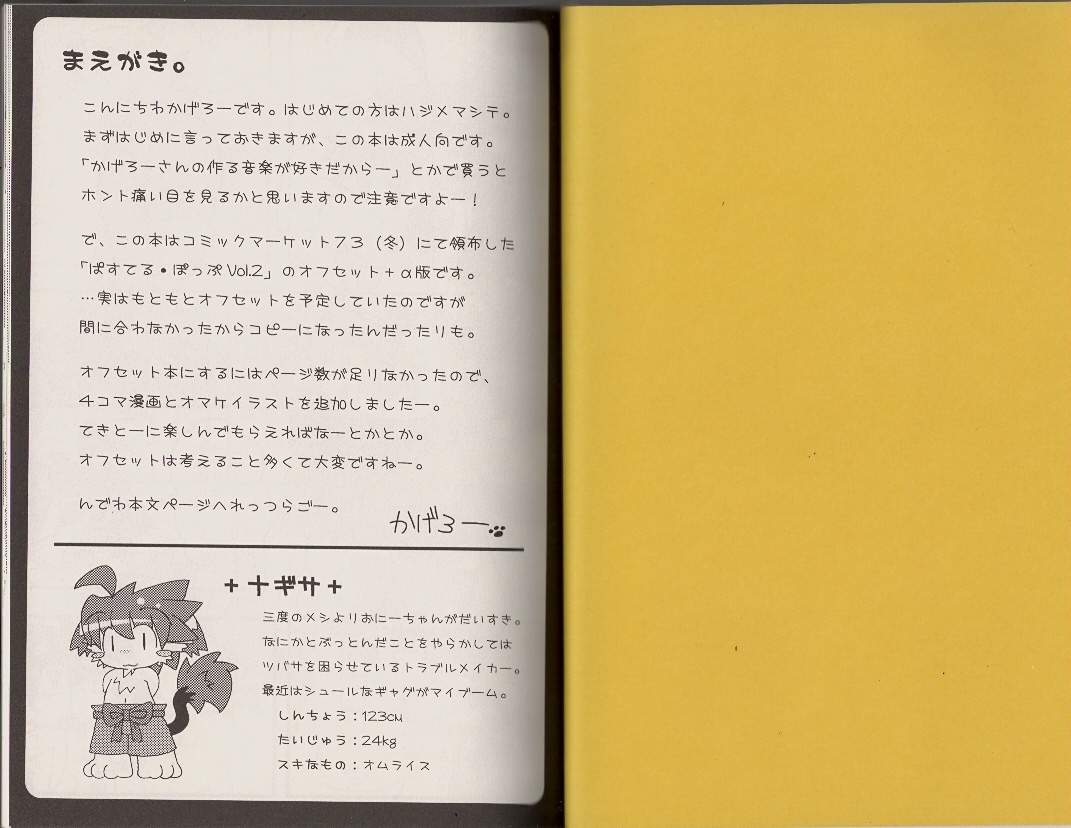 まえがき。
こんにちわかげろーです。はじめての方はハジメマシテ。
まずはじめに言っておきますが、この本は成人向です。
「かげろーさんの作る音楽が好きだからー」とかで買うと
ホント痛い目を見るかと思いますので注意ですよー！
で、この本はコミックマーケット７３（冬）にて頒布した
「ぱすてる・ぽっぷ Vol.2」のオフセット＋α版です。
…実はもともとオフセットを予定していたのですが
間に合わなかったからコピーになったんだったりも。
オフセット本にするにはページ数が足りなかったので、
４コマ漫画とオマケイラストを追加しましたー。
てきとーに楽しんでもらえればなーとかとか。
オフセットは考えること多くて大変ですねー。
んでわ本文ページへれっつらごー。
かげろー
＋ナギサ＋
三度のメシよりおにーちゃんがだいすき。
なにかとぶっとんだことをやらかしては
ツバサを困らせているトラブルメイカー。
最近はシュールなギャグがマイブーム。
しんちょう：123cm
たいじゅう：24kg
スキなもの：オムライス